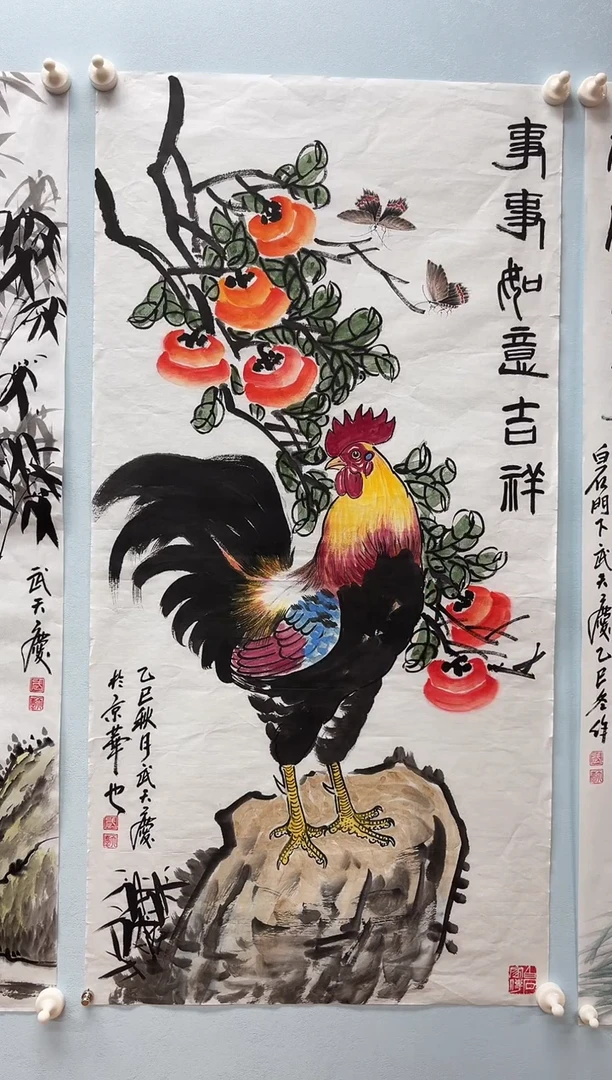 事事如意吉祥
乙巳秋月武天庆
於京華也
武天庆
白石門下武天庆乙巳冬作